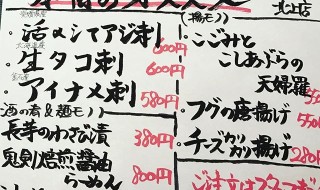 本日のオススメ
北上店
愛媛県産
活〆シマアジ刺
600円
北海道産
生タコ刺
600円
宮古産
アイナメ刺 580円
酒の肴&麺モノ
長芋のわさび漬 380円
鬼剣焙煎醤油
らーめん 800円
揚モノ
・こごみと
こしあぶらの
天婦羅
・フグの唐揚げ 550
・チーズカリカリ揚げ 280円
ご注文はスタッフ